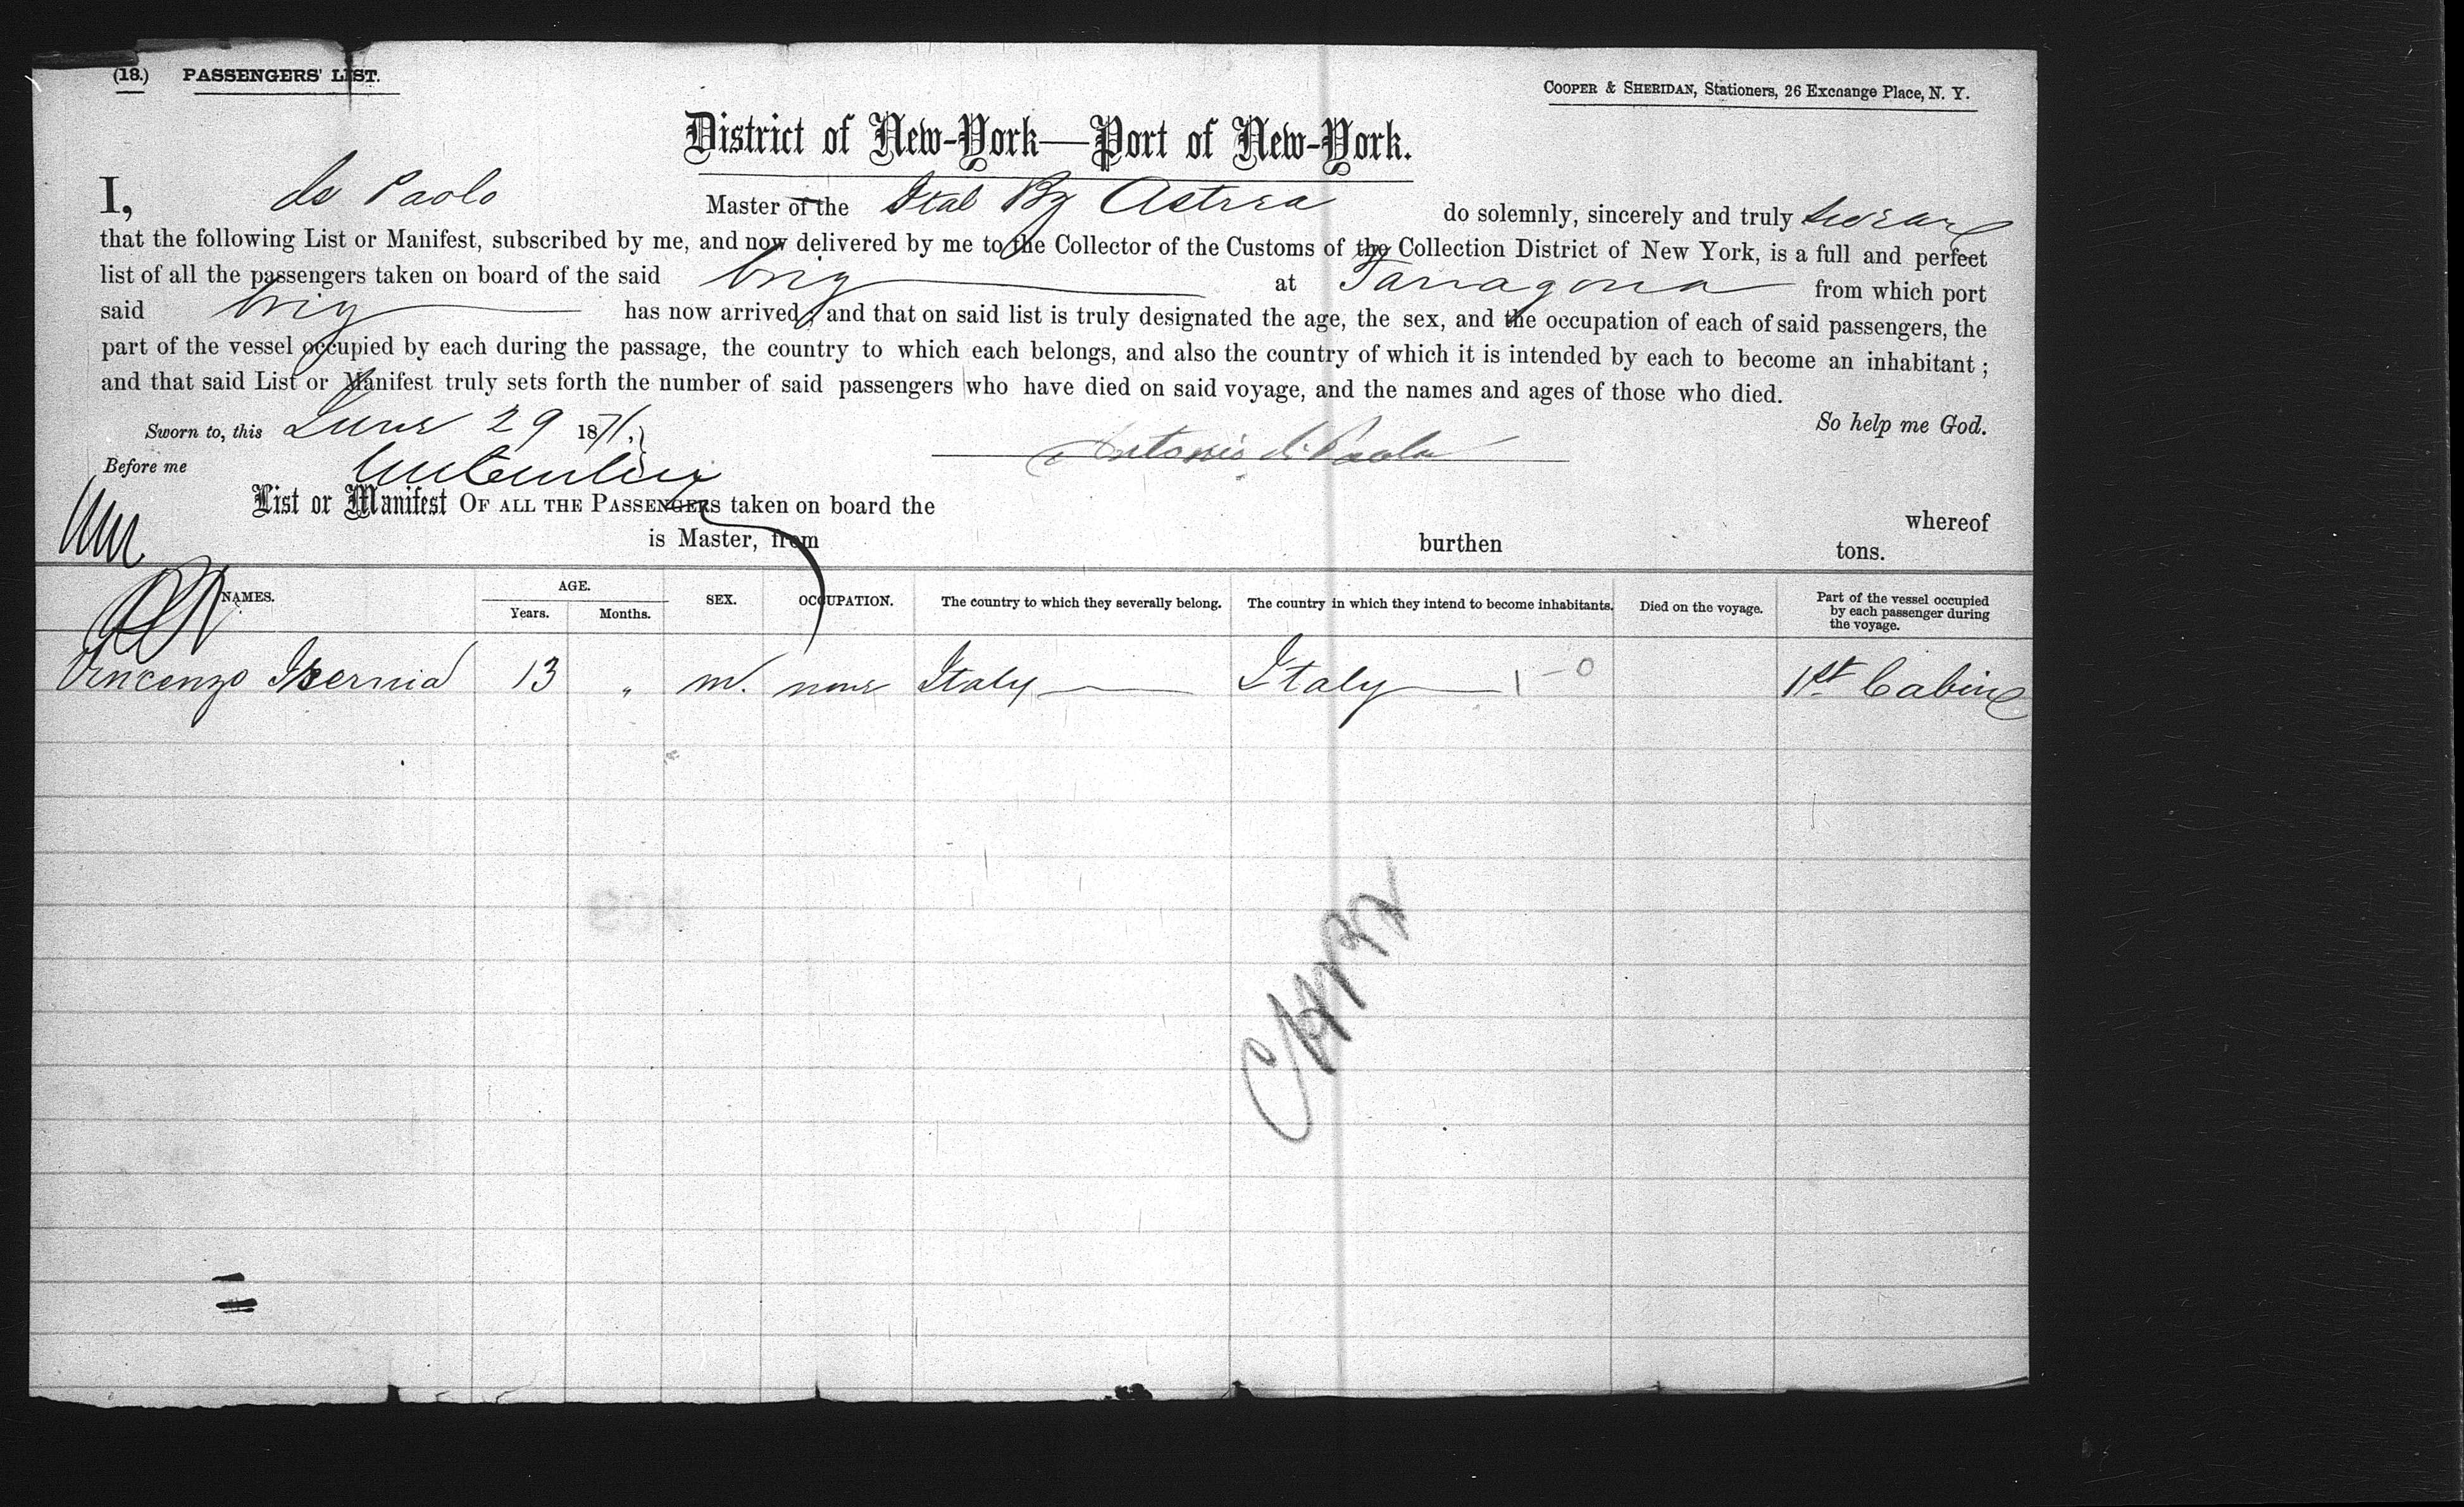 (18.) PASSENGERS' LIST.
COOPER & SHERIDAN, Stationers, 26 Exchange Place, N. Y.
District of New-York—Port of New-York.
I, de Paolo Master of the Ital Bg Astrea do solemnly, sincerely and truly swear
that the following List or Manifest, subscribed by me, and now delivered by me to the Collector of the Customs of the Collection District of New York, is a full and perfect
list of all the passengers taken on board of the said brig at Tarragona from which port
said brig has now arrived; and that on said list is truly designated the age, the sex, and the occupation of each of said passengers, the
part of the vessel occupied by each during the passage, the country to which each belongs, and also the country of which it is intended by each to become an inhabitant;
and that said List or Manifest truly sets forth the number of said passengers who have died on said voyage, and the names and ages of those who died.
So help me God.
Sworn to, this June 29 1871,
Antonio di Paola
Before me
List or Manifest OF ALL THE PASSENGERS taken on board the whereof
is Master, from burthen tons.
NAMES. AGE. Years. Months. SEX. OCCUPATION. The country to which they severally belong. The country in which they intend to become inhabitants. Died on the voyage. Part of the vessel occupied by each passenger during the voyage.
Vincenzo Isernia 13 " m. none Italy Italy 1-0 1st Cabin